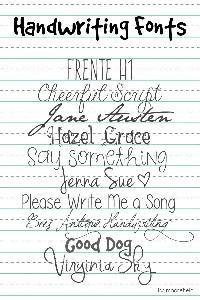 Handwriting Fonts
FRENTE H1
Cheerful Script
Jane Austen
Hazel Grace
Say Something
Jenna Sue ♡
Please Write Me a Song
Antonio Handwriting
Good Dog
Virginia Sky